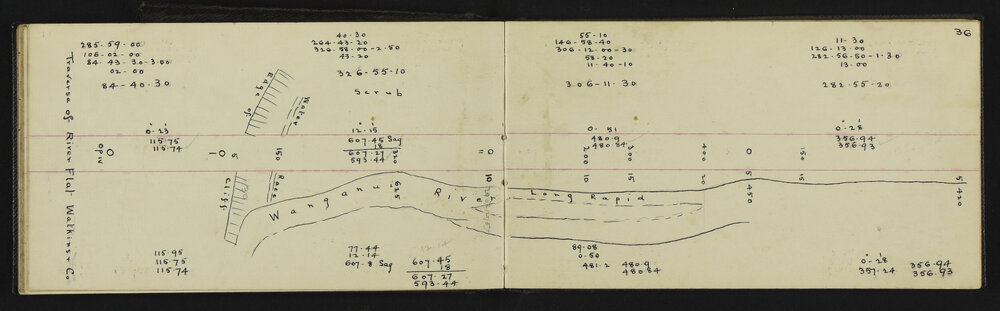 36
Traverse of River Flat Watkins & Co
285-59-00
106-02-00
84-43-30-3-00
02-00
84-40-30
40-30
264-43-20
326-58-00-2-50
43-20
326-55-10
Scrub
55-10
146-58-40
306-12-00-30
58-20
11-40-10
306-11-30
11-30
126-13-00
282-56-50-1-30
13-00
282-55-20
Edge of
Cliff
Water
Race
0-23
115.75
115.74
12-15
607.45 Sag
18
607.27
593.44
0. 51
480.9
480.84
0-28
356.94
356.93
5
150
320
200
300
400
150
10
15
15
20
5
450
5
420
625
Wanganui River
Long Rapid
115.95
115.75
115.74
77.44
12.14
607.8 Sag
12.14
607.45
18
607.27
593.44
89.08
0.50
481.2
480.9
480.84
0-28
357.24
356.94
356.93